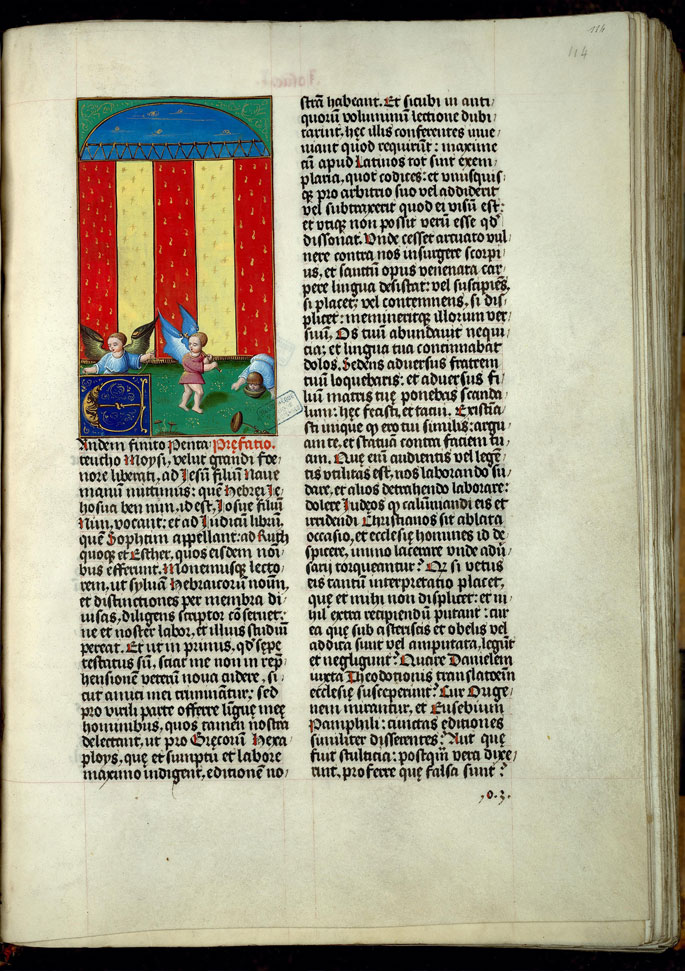 114
114
Josue
Pręfatio.
Andem finito Penta
teucho Moysi, velut grandi foe
nore liberati, ad Jesũ filiũ Naue
manũ mittimus: quẽ Hebrei Je
hosua ben nun, id est, Josue filiũ
Nun, vocant: et ad Judicũ librũ,
quẽ Sophtim appellant: ad Ruth
quoq; et Esther, quos eisdem noĩ
bus efferunt. Monemusq; lecto
rem, ut syluã Hebraicorũ noĩnũ,
et distinctiones per membra di
uisas, diligens scriptor cõseruet:
ne et noster labor, et illius studiũ
pereat. Et ut in primis, qd sępe
testatus sũ, sciat me non in repre
hensionem veterũ noua cudere, si
cut amici mei criminãtur: sed
pro virili parte offerre linguę męę
hominibus, quos tamẽ nostra
delectant, ut pro Gręcorũ Hexa
ploys, quę et sumptu et labore
maximo indigent, editionẽ no
strã habeant. Et sicubi in anti
quorũ voluminũ lectione dubi
tarint, hęc illis conferentes inue
niant quod requirũt: maxime
cũ apud Latinos tot sint exem
plaria, quot codices: et vnusquis
q; pro arbitrio suo vel addiderit
vel subtraxerit quod ei visũ est:
et vtiq; non possit verũ esse qd
dissonat. Vnde cesset arcuato vul
nere contra nos insurgere scorpi
us, et sanctũ opus venenata car
pere lingua desistat: vel suscipiẽs,
si placet: vel contemnens, si dis
plicet: memineritq; illorum ver
suũ. Os tuũ abundauit nequi
cia: et lingua tua continnabat
dolos. Sedens aduersus fratrem
tuũ loquebaris: et aduersus fi
liũ matris tuę ponebas scanda
lum: hęc fecisti, et tacui. Existĩa
sti inique q ero tui similis: argu
am te, et statuã contra faciem tu
am. Quę enĩ audientis vel legẽ
tis vtilitas est, nos laborando su
dare, et alios detrahendo laborare:
dolere Judęos q calũniandi eis et
irridendi Christianos sit ablata
occasio, et ecclesię homines id de
spicere, immo lacerare vnde aduer
sarii torqueantur? Qr si vetus
eis tantũ interpretatio placet,
quę et mihi non displicet: et ni
hil extra recipiendũ putant: cur
ea quę sub asteriscis et obelis vel
addita sunt vel amputata, legũt
et negligunt? Quare Danielem
iuxta Theodotionis translatoẽm
ecclesię susceperunt? Cur Orige
nem mirantur, et Eusebium
Pamphili: cunctas editiones
similiter disserentes? Aut quę
fuit stulticia: postqm vera dixe
rint, proferre quę falsa sunt?
.o.3.